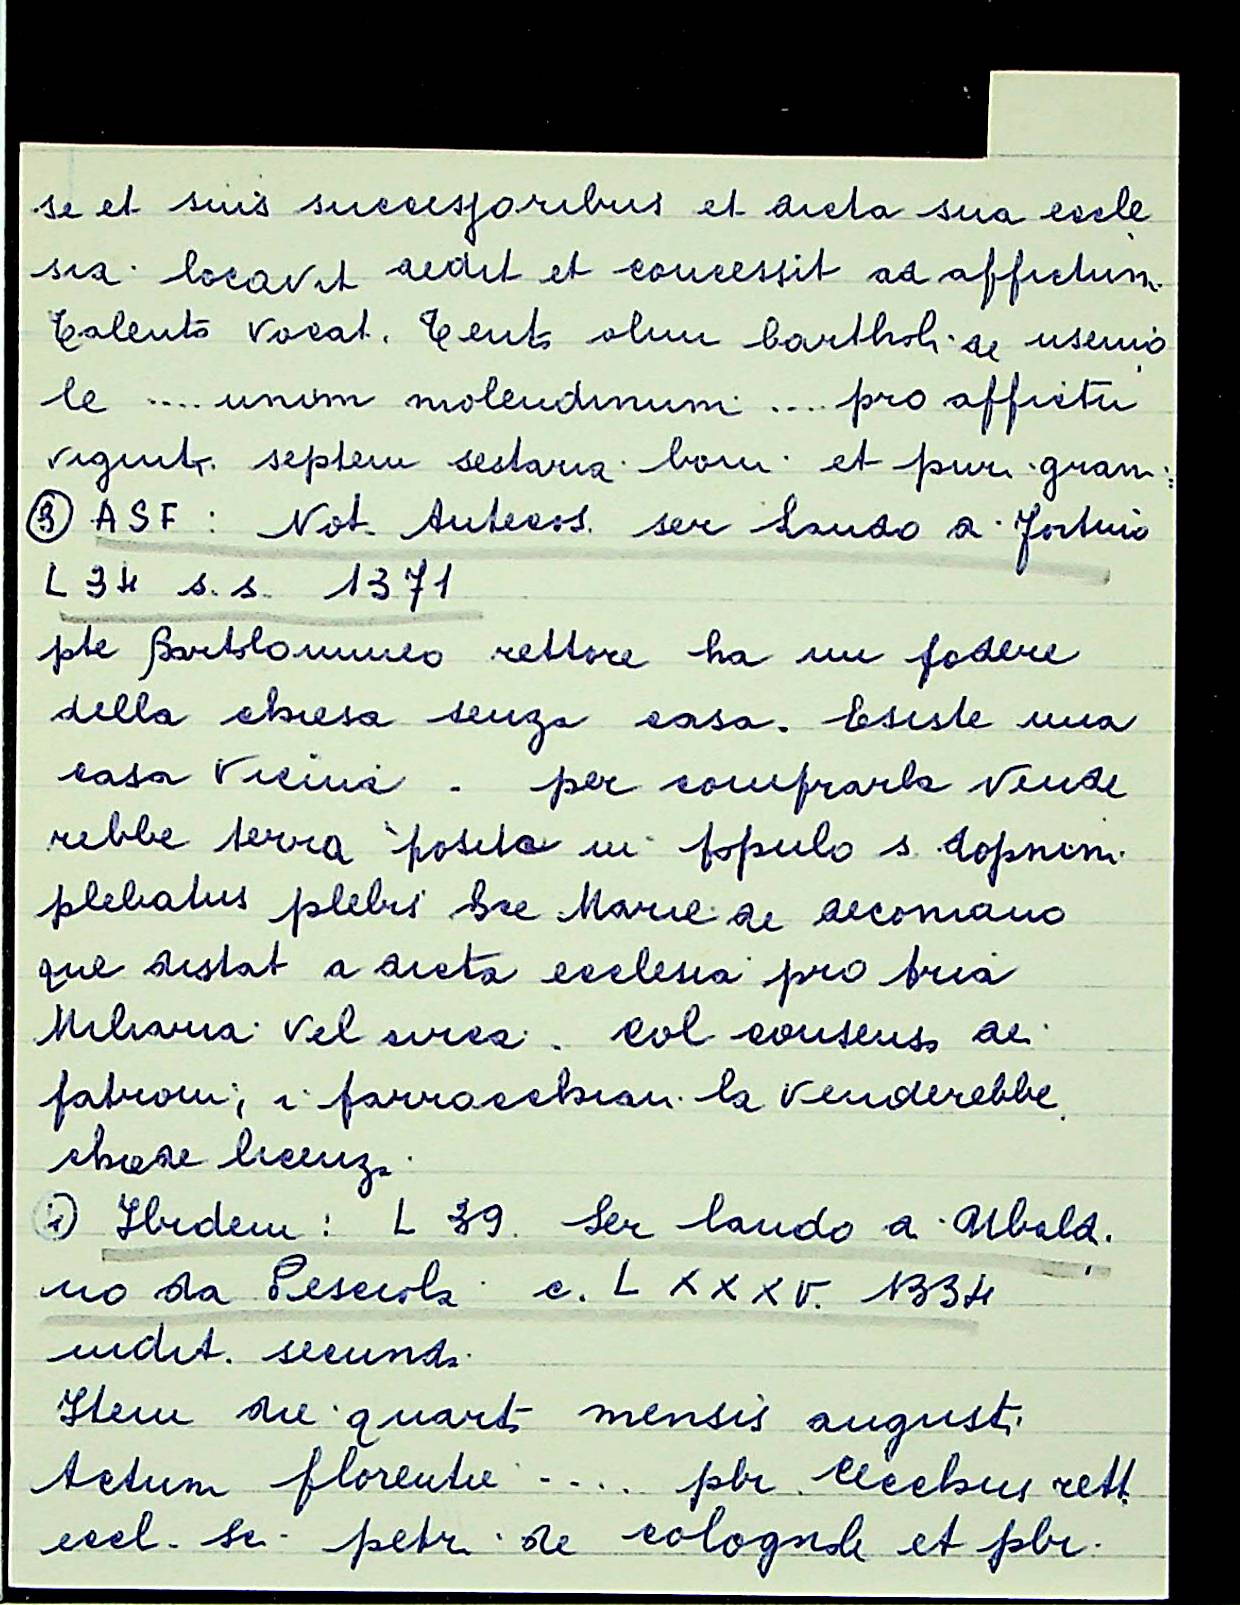 se et suis successoribus et dicta sua eccle
sia locavit dedit et concessit ad affictum
Talento vocat. Cenb olim barthol. de
le .... unum molendinum .... pro affictu
vigint. septem sestaria boni et puri gran:
③ ASF: Not. Antecos. ser Lando d.
L 34 s.s. 1371
pte Bartolommeo rettore ha un podere
della chiesa senza casa. Esiste una
casa vicina. per comprarla vende
rebbe terra posita in populo s. dopnini
plebatus plebis Sce Marie de decomano
que distat a dicta ecclesia pro tria
Miliaria vel circa. col consenso dei
patroni, i parrocchiani la venderebbe
chiede licenza.
④ Ibidem: L 39. Ser lando d. Ubald.
no da Pesciola c. L X X X V. 1334
indit. secunda.
Item die quarto mensis augusti
Actum florentie .... pbr. Cecchus rett.
eccl. Sci petri de colognole et pbr.